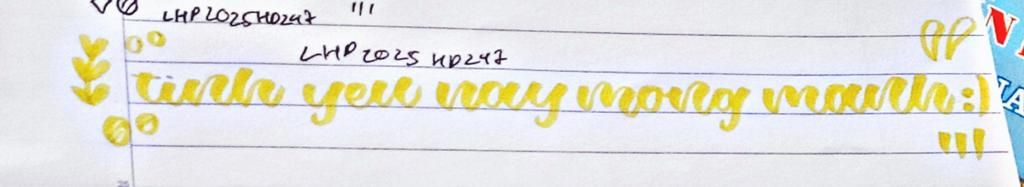 LHP2025HD247
LHP2025HD247
tinh yeu nay mong manh:)